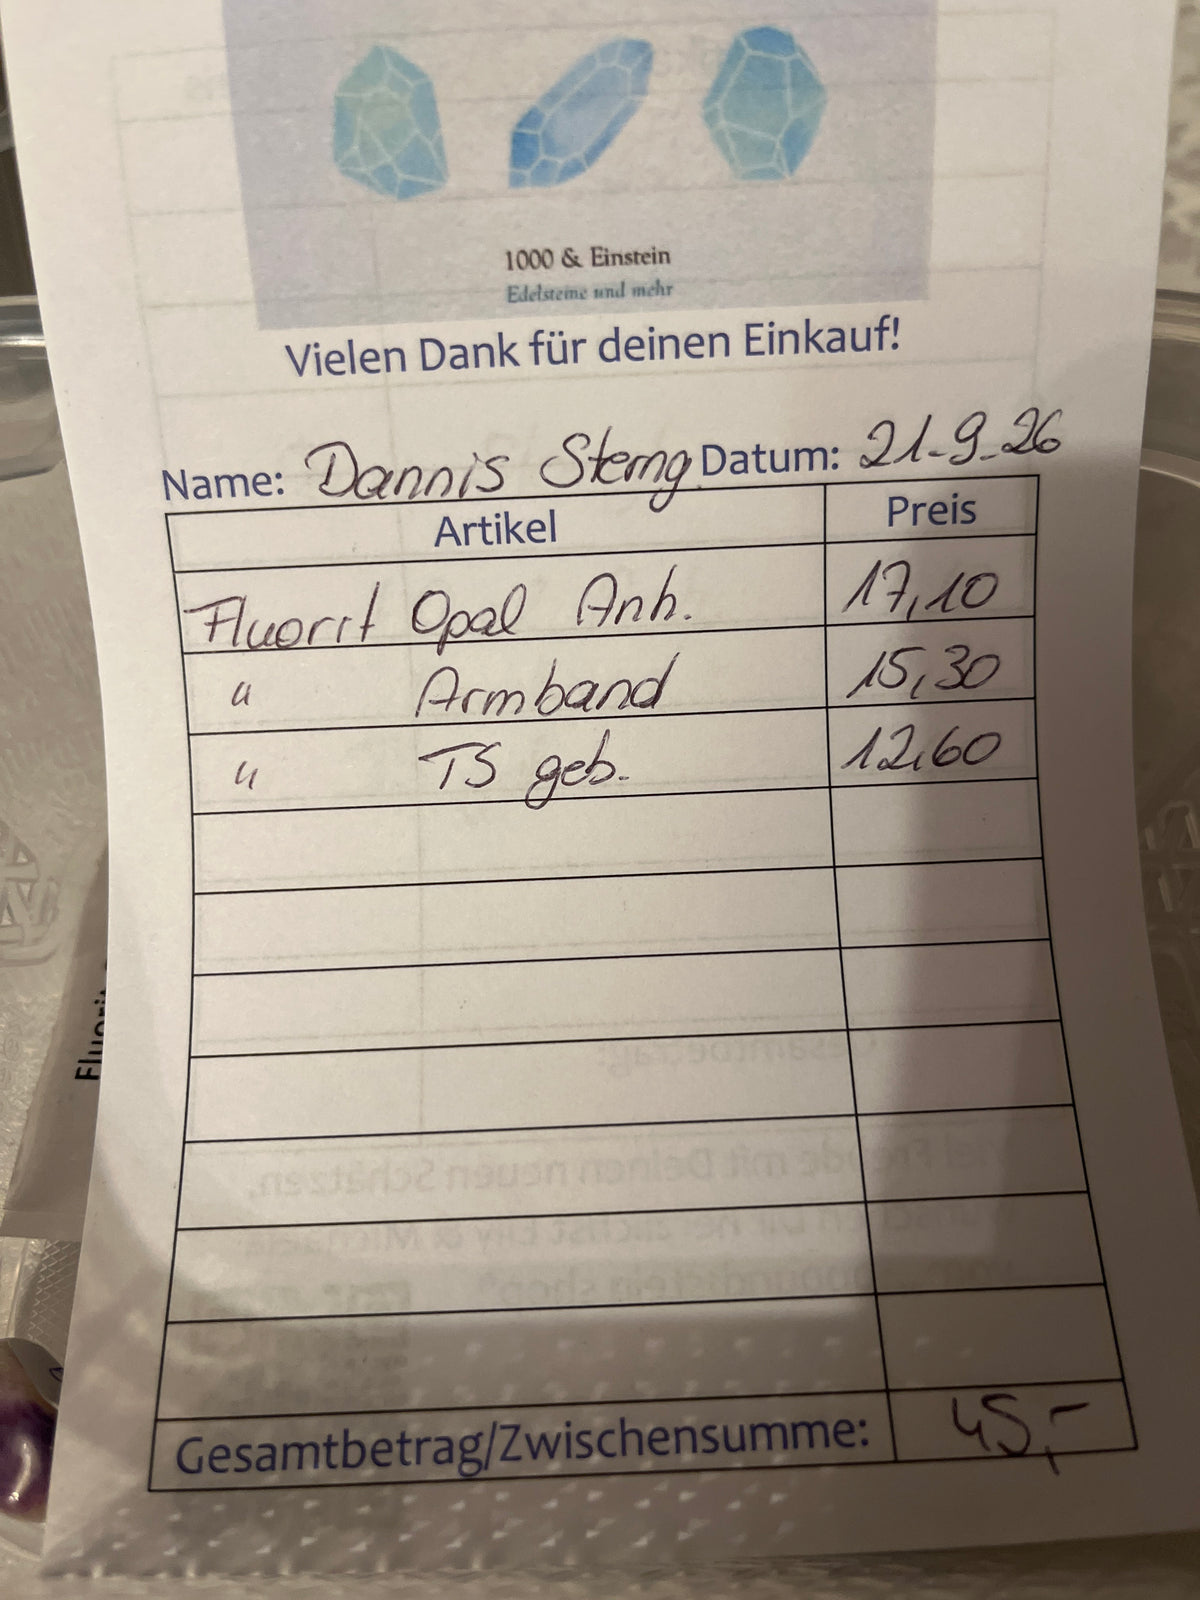 1000 & Einstein
Edelsteine und mehr
Vielen Dank für deinen Einkauf!
Name: Dannis Sterng Datum: 21.9.26
Artikel Preis
Fluorit Opal Anh. 17,10
" Armband 15,30
" TS geb. 12,60
Gesamtbetrag/Zwischensumme: 45,-
Fluorit